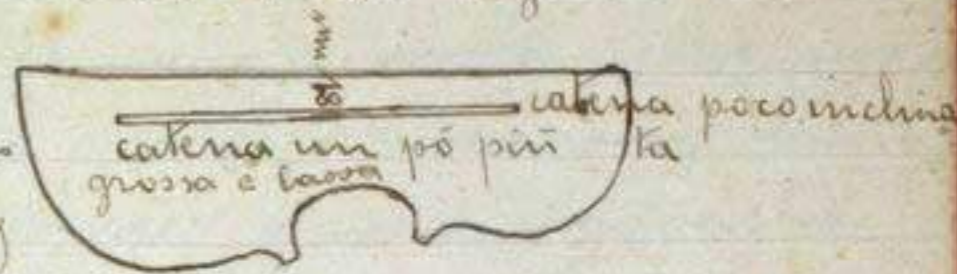 catena poco inclina
catena un pó piu ta
grossa e bassa